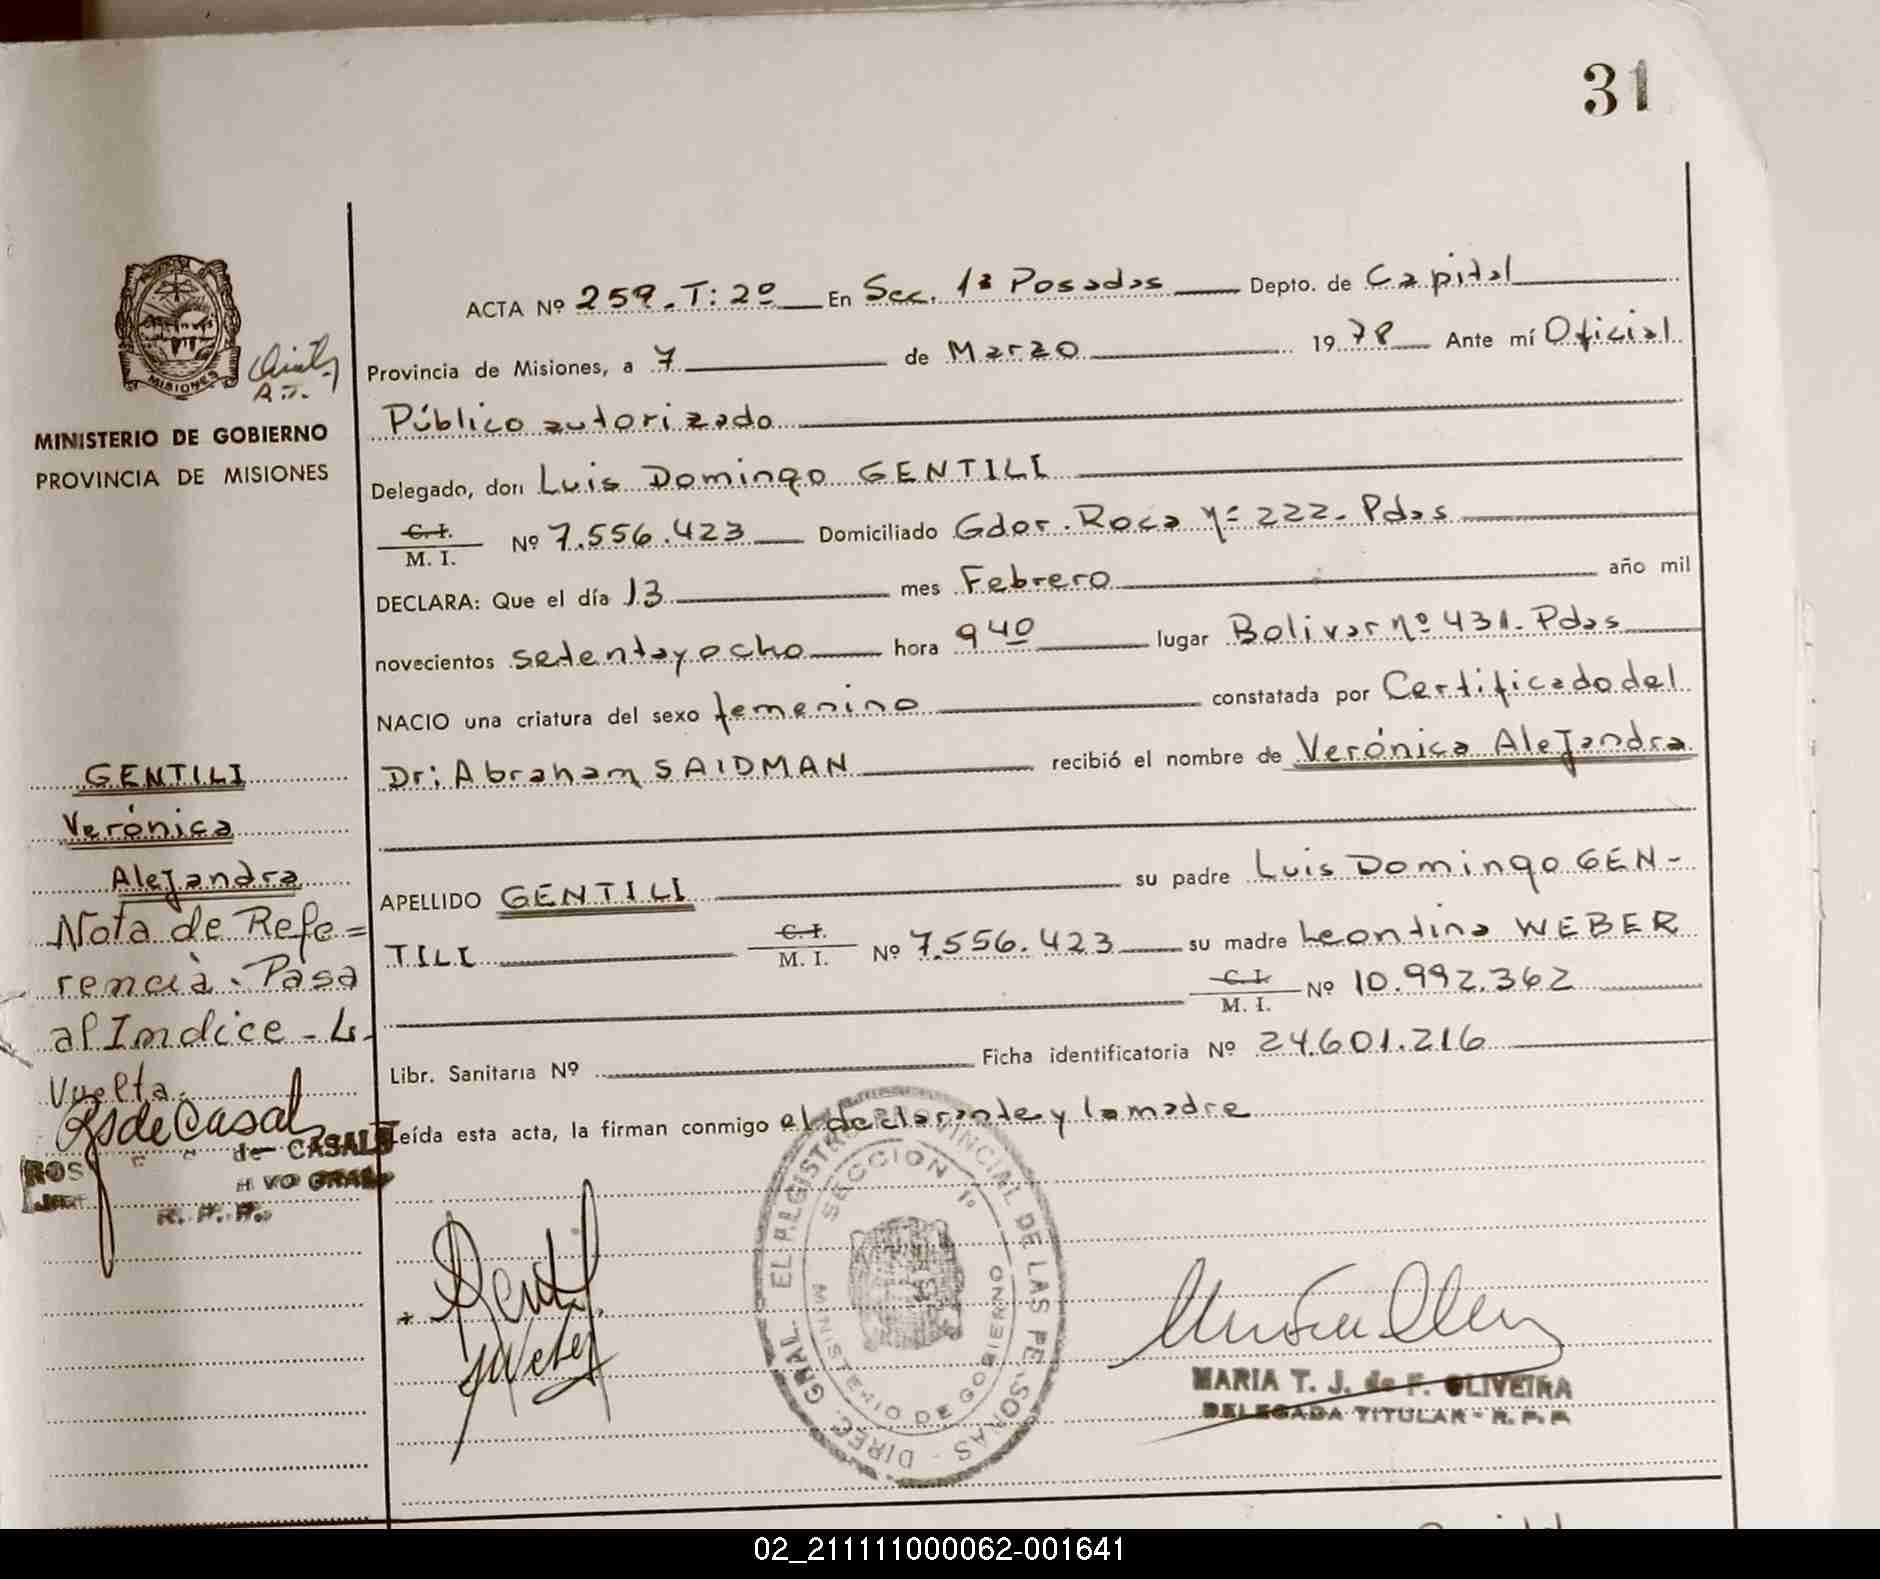 31
MISIONES
MINISTERIO DE GOBIERNO
PROVINCIA DE MISIONES
ACTA Nº 259.T:2º En Sec. 1ª Posadas Depto. de Capital
Provincia de Misiones, a 7 de Marzo 1978 Ante mí Oficial
Público autorizado
Delegado, don Luis Domingo GENTILI
C.I.
M. I. Nº 7.556.423 Domiciliado Gdor. Roca Nº 222. Pdas
DECLARA: Que el día 13 mes Febrero año mil
novecientos setenta y ocho hora 9 40 lugar Bolivar nº 431. Pdas
NACIO una criatura del sexo femenino constatada por Certificado del
Dr: Abraham SAIDMAN recibió el nombre de Verónica Alejandra
APELLIDO GENTILI su padre Luis Domingo GEN-
TILI C.I.
M. I. Nº 7.556.423 su madre Leontina WEBER
C.I.
M. I. Nº 10.992.362
Libr. Sanitaria Nº Ficha identificatoria Nº 24.601.216
Leída esta acta, la firman conmigo el declarante y la madre
GENTILI
Verónica
Alejandra
Nota de Refe=
rencia. Pasa
al Indice - a
Vuelta.
RsdeCasal
de CASALS
ROS
JEFE
R. P. P.
DIREC. GRAL. EL REGISTRO PROVINCIAL DE LAS PERSONAS
SECCION 1º
MINISTERIO DE GOBIERNO
MARIA T. J. de F. OLIVEIRA
DELEGADA TITULAR - R. P. P.
02_211111000062-001641